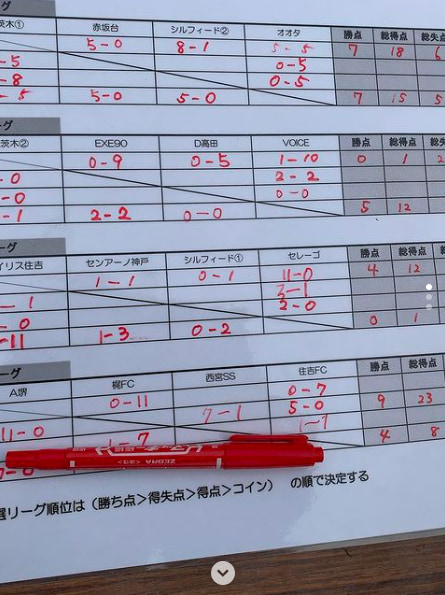 茨木① 赤坂台 シルフィード② オオタ 勝点 総得点 総失点
5-0 8-1 5-5 7 18 6
-5 0-5
-8 0-5
-5 5-0 5-0 7 15 5
ーグ
茨木② EXE90 D高田 VOICE 勝点 総得点
0-9 0-5 1-10 0 1 2
-0 2-2
-0 0-0
-1 2-2 0-0 5 12
ーグ
イリス住吉 センアーノ神戸 シルフィード① セレーゴ 勝点 総得点
1-1 0-1 11-0 4 12
-1 3-1
-0 2-0
-11 1-3 0-2 0 1
ーグ
A堺 梶FC 西宮SS 住吉FC 勝点 総得点
0-11 0-7 9 23
7-1 5-0
11-0 1-7
1-7 4 8
7-0
ZEBRA
選リーグ順位は(勝ち点>得失点>得点>コイン) の順で決定する